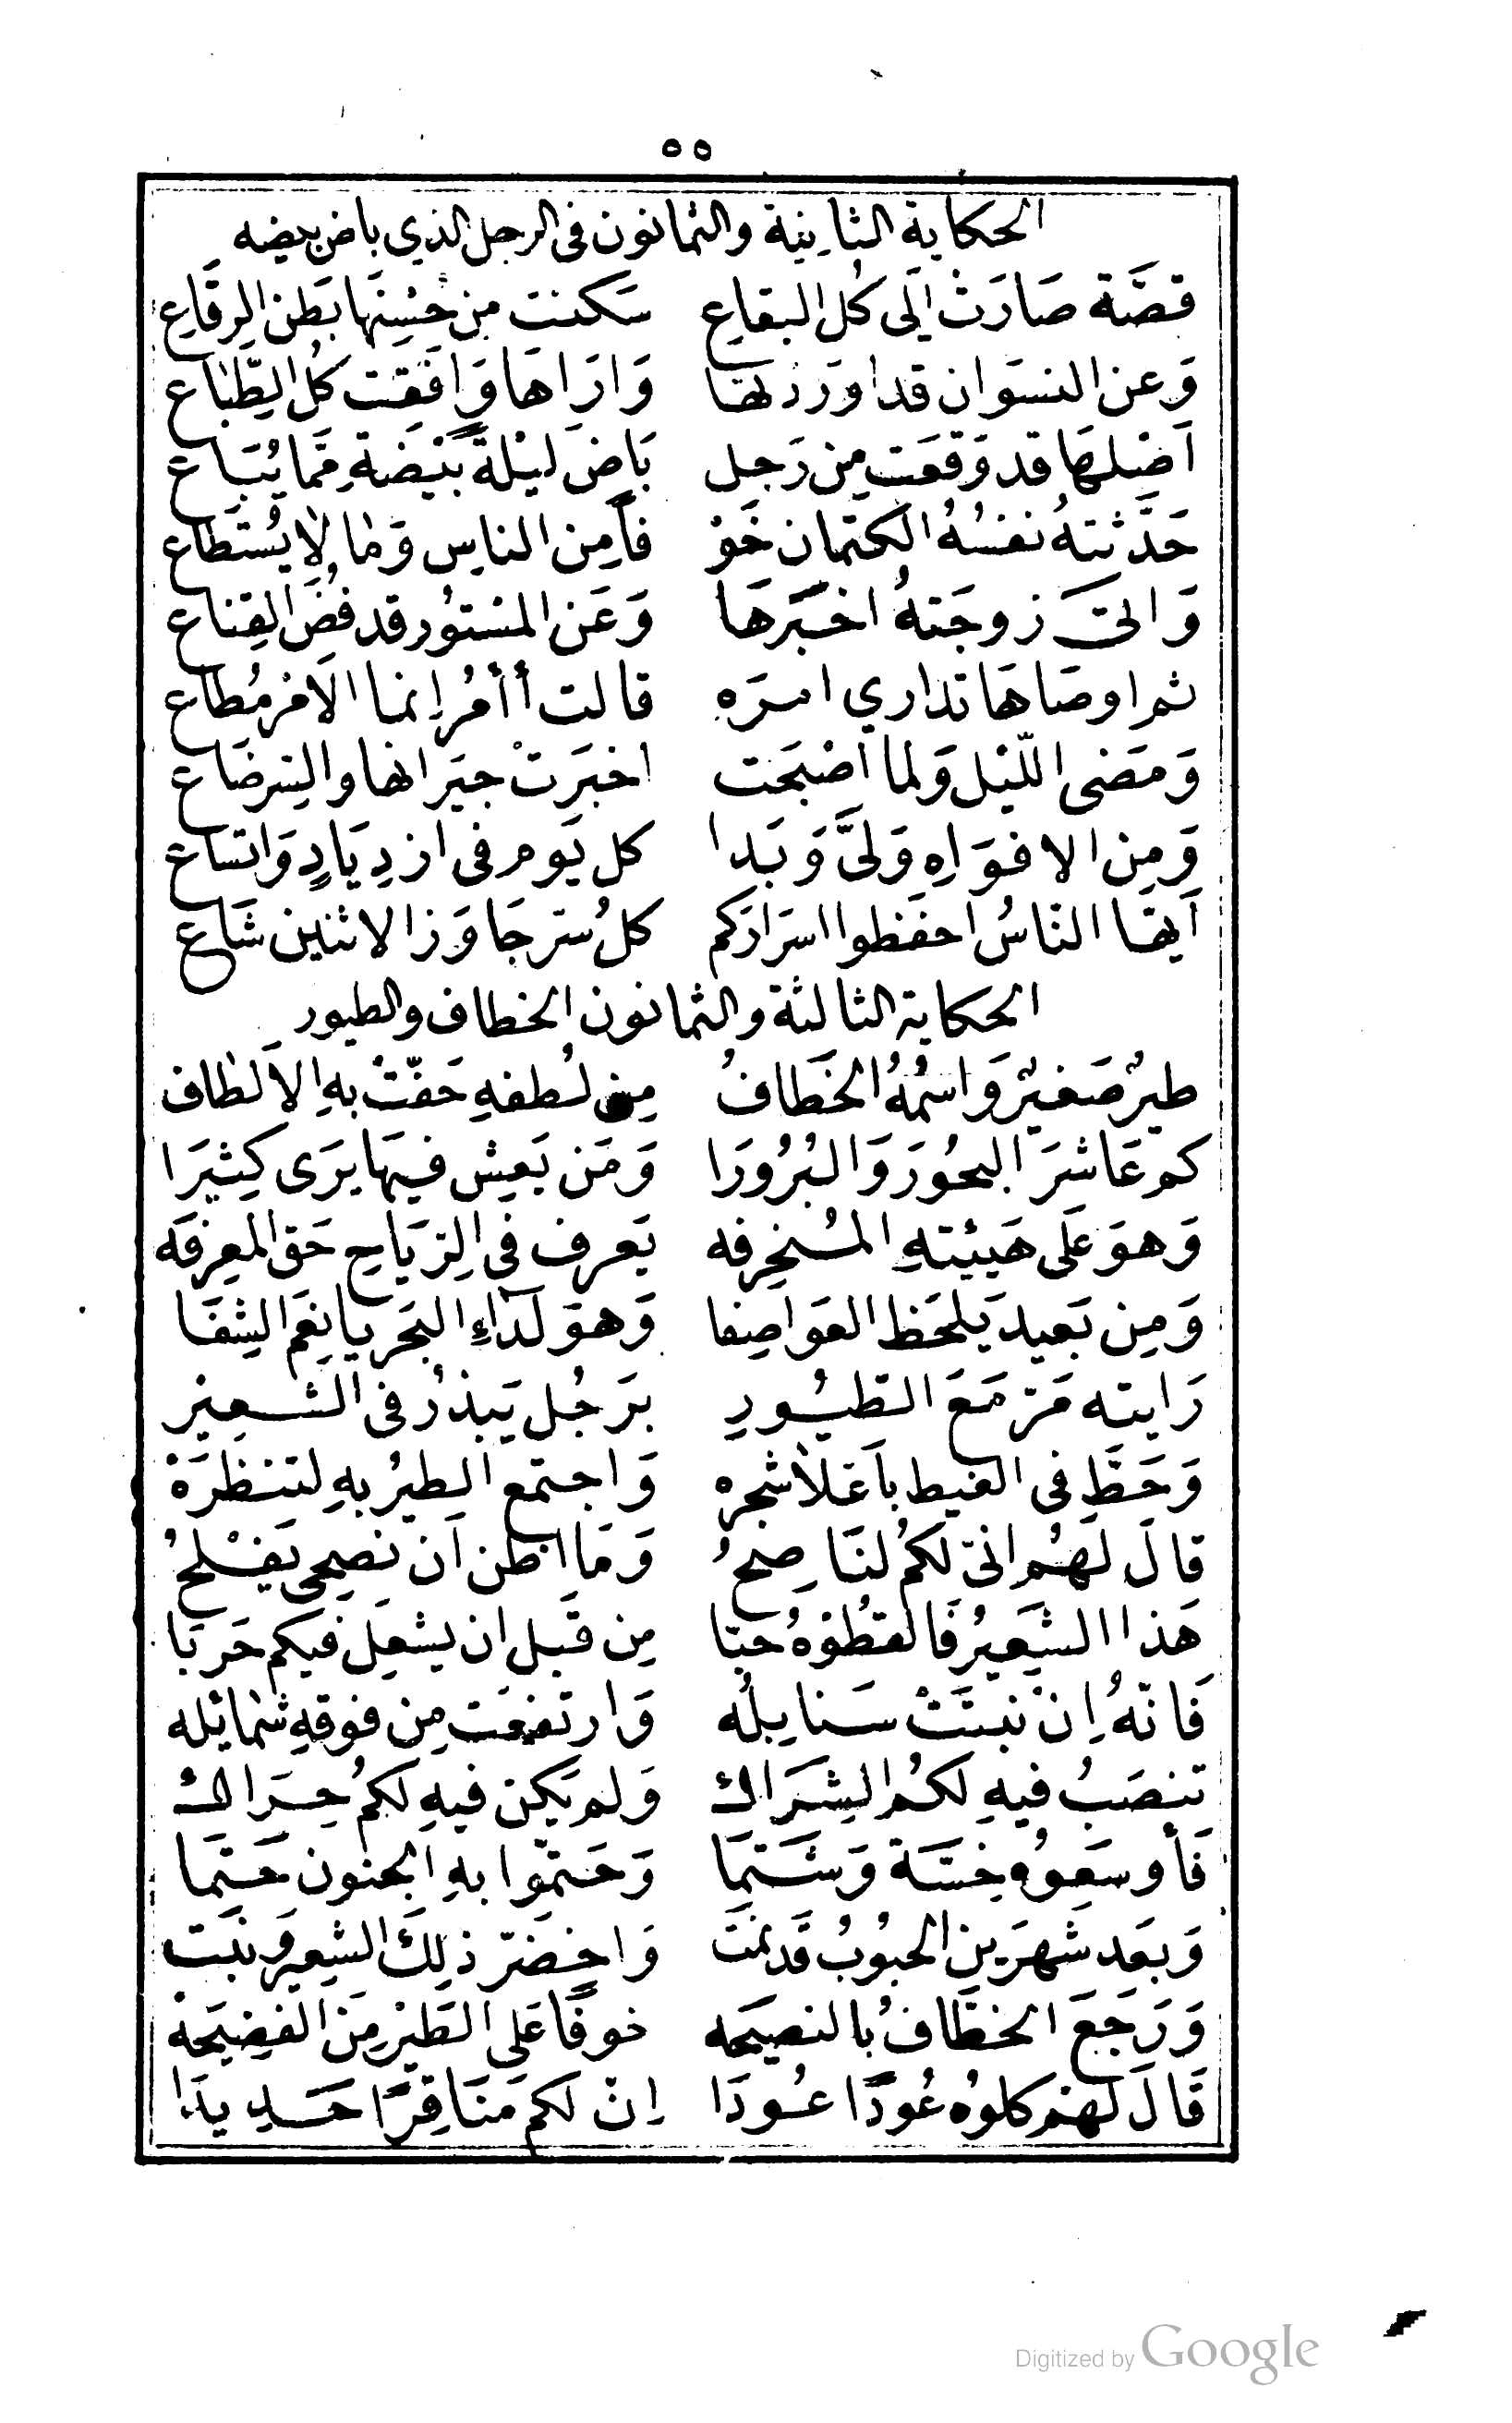 ٥٥
الحكاية الثانية والثمانون فى الرجل الذي باض بيضه
قصَّة صَارَتْ اِلَى كُل البقاعِ سَكنت مِن حُسْنِهَا بَطن الرِقَاعِ
وَعن النسوَان قد اوردتها وَارَاهَا وَافقت كُل الطِّبَاع
اَصْلهَا قد وَقعَت مِن رَجل بَاضَ ليْلةً بَيْضَة مِمَّا يُبَاع
حَدَّثتهُ نفسُهُ الكتمان خَوْ فاً مِن الناسِ وَمَا لَا يُسْتَطاع
وَالى زوجَتهُ اخبَرهَا وَعَن المَستُور قد فُضَّ القِناع
ثم اوصَاهَا تدَاري امرَه قالت أأمُر اِنما الاَمْر مُطَاع
وَمَضى اللّيْل وَلما اَصْبَحَت اخبَرَتْ جيرَانها والسِر ضَاع
وَمِن الافوَاهِ وَلىَّ وَبَدا كل يَوم فى ازدِيَادٍ وَاتساع
اَيهَا النّاسُ احفَظوا اسرَارَكم كلُ سرّ جَاوَز الاثنين شَاع
الحكاية الثالثة والثمانون الخطاف والطيور
طيرٌ صَغيرٌ وَاسْمُهُ الخَطَافُ مِن لُطفهِ حَفّتْ بهِ الاَلطاف
كم عَاشرَ البحُورَ وَالبُرُورَا وَمَن يَعِش فيهَا يرَى كِثيرَا
وَهوَ عَلى هَيْئتهِ المُنحرِفه يَعرف فى الرّيَاحِ حَق المَعرِفَه
وَمِن بَعيد يَلحَظ العَوَاصِفا وَهوَ لدَاءِ البَحر يا نِعَم الشِفَا
رَايته مَرّ مَعَ الطيُورِ برَجُل يَبذرُ فى الشعِيرِ
وَحَطَّ فى الغيط بِاَعَلَا شجره وَاجتمع الطيرُ بهِ لتنظرَهْ
قالَ لَهُم انىّ لكُم لنَاصِحُ وَمَا اظن اَن نصْحِى يَفْلحُ
هَذا الشَعيرُ فَالقطُوهُ حَبّا مِن قَبل ان يشعِل فيكم حَربَا
فَانّهُ اِن نبتَتْ سَنابِلُه وَارتفعَت مِن فوقهِ شمَائله
تنصَبُ فيهِ لكمُ الشِرَاك وَلم يَكن فيهِ لكمُ حِرَاك
فَأوسَعوُه خِسَّة وَشَتمَا وَحَتمّوا بهِ الجنون حَتمَا
وَبعَد شَهرَين الحبُوبُ قَد نمَت وَاخضَرّ ذلِكَ الشعِير وَنبَت
وَرَجَعَ الخطَّافُ بالنصيحَه خوفًا عَلى الطَيْر مِنَ الفضِيَحة
قَالَ لَهُم كلوُه عُودًا عُودَا اِنّ لكم مَنَاقِرًا حَدِيدَا
Digitized by Google